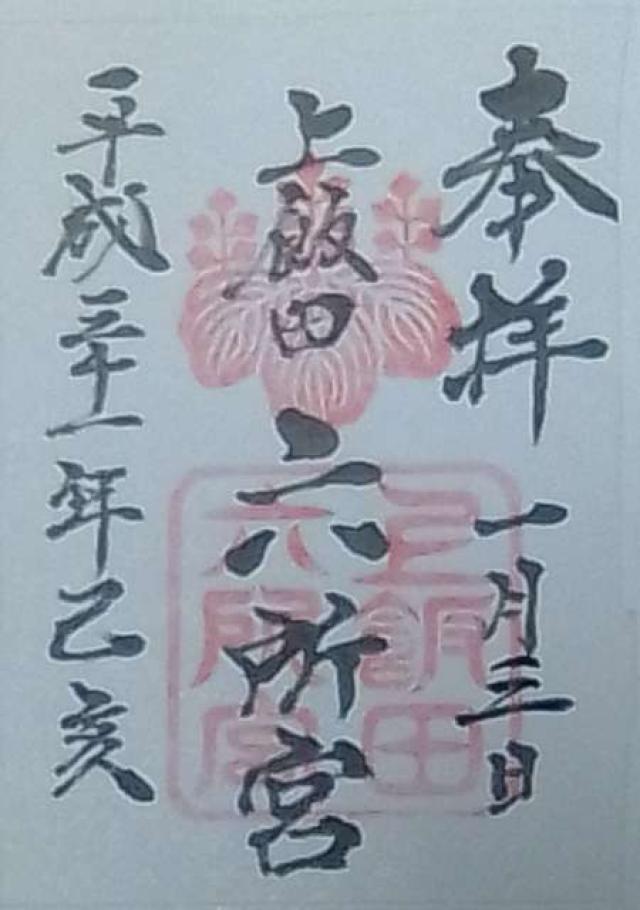 奉拝
一月三日
上飯田
六所宮
平成三十一年己亥
上飯田
六所宮